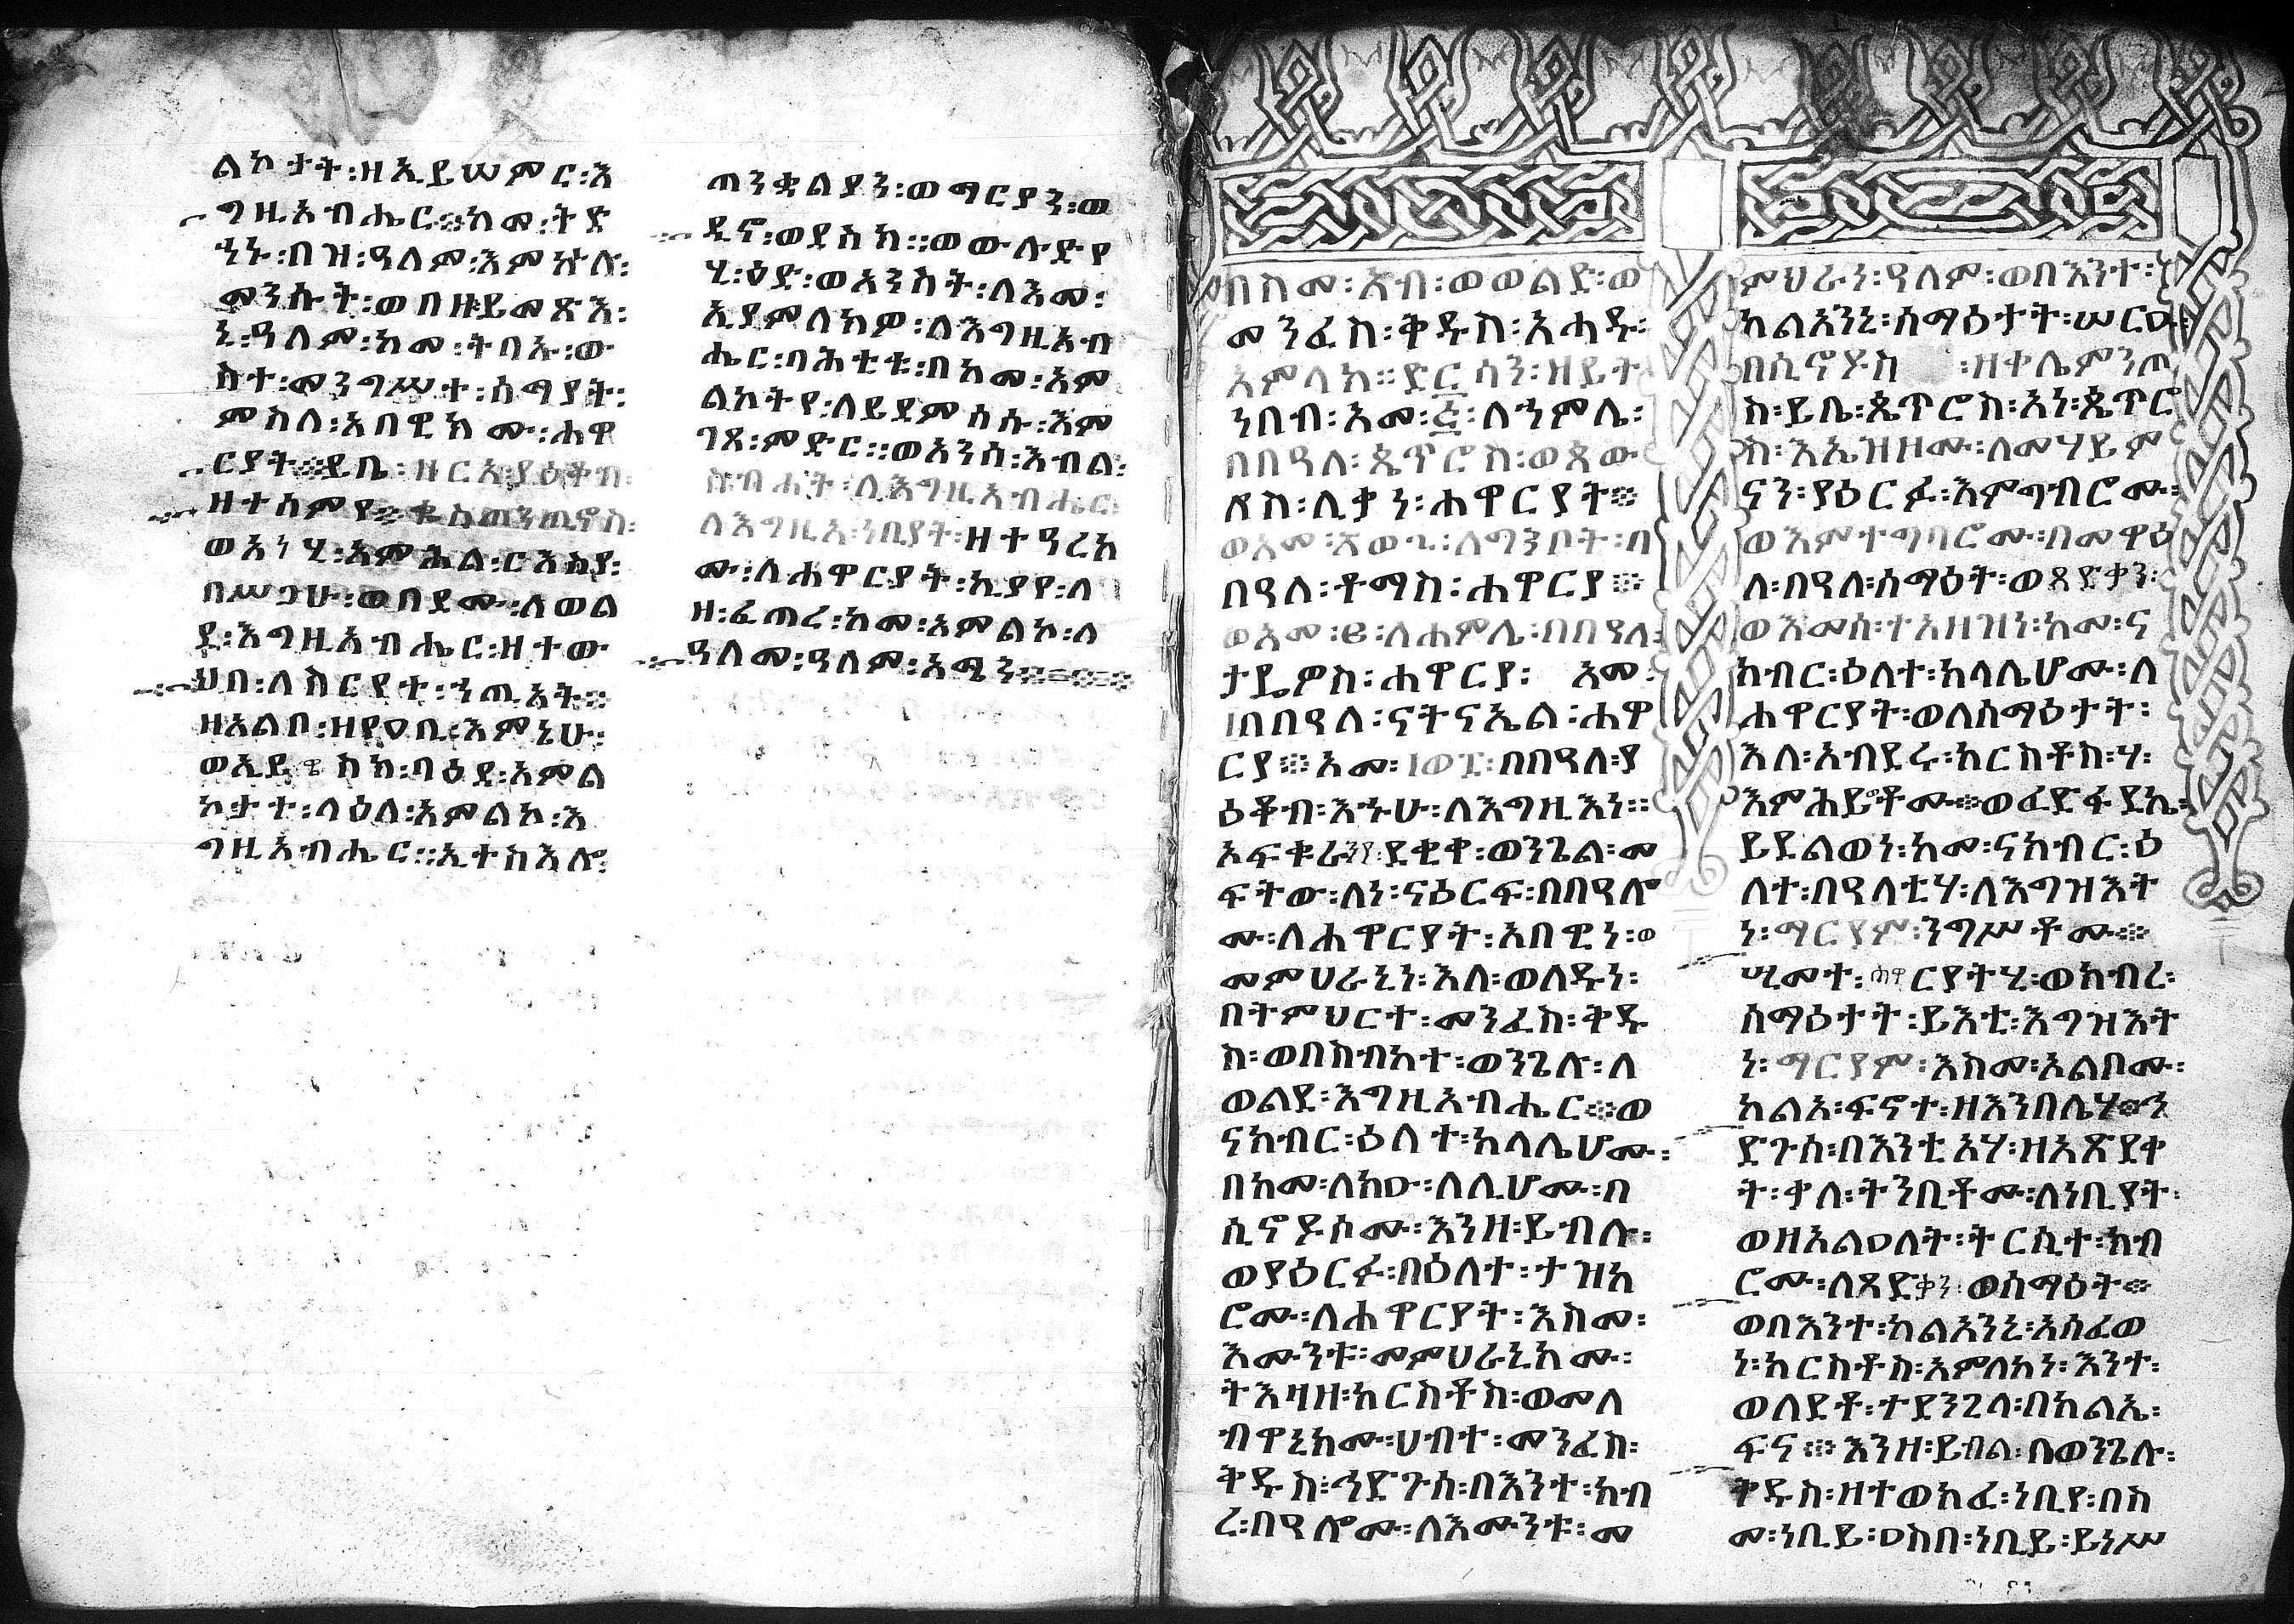 ልኮታት፡ዘኢይሠምር፡እ
ግዚአብሔር፨ከመ፡ትድ
ኅኑ፡በዝ፡ዓለም፡እምኵሉ፡
መንሱት፡ወበዙይመጽእ፡
ኒ፡ዓለም፡ከመ፡ትባኡ፡ው
ስተ፡መንግሥተ፡ሰማያት፡
ምስለ፡አበዊክሙ፡ሐዋ
ርያት፨ይቤ፡ዘርአ፡ያዕቆብ፡
ዘተሰምየ፨ቈስጠንጢኖስ፡
ወአነሂ፡አምሕል፡ርእስየ፡
በሥጋሁ፡ወበደሙ፡ለወል
ደ፡እግዚአብሔር፡ዘተው
ህበ፡ለስርየተ፡ኀጢአት፨
ዘአልቦ፡ዘየዐቢ፡እምኔሁ፡
ወኢይዌስክ፡ባዕደ፡አምል
ኮታተ፡ላዕለ፡አምልኮ፡እ
ግዚአብሔር፡፡ኢተከእሎ፡
ጠንቋልያን፡ወማርያን፡ወ
ዲኖ፡ወደስክ፡፡ወውሉድየ
ሂ፡ዕድ፡ወአንስት፡ለእመ፡
ኢያምለክዎ፡ለእግዚአብ
ሔር፡ባሕቲቱ፡በከመ፡አም
ልኮትየ፡ለይደምሰሱ፡እም
ገጸ፡ምድር፡፡ወአንሰ፡እብል፡
ስብሐት፡ለእግዚአብሔር፡
ለእግዚአ፡ነቢያት፡ዘተዓረከ
ሙ፡ለሐዋርያት፡ኪያየ፡ለ
ዘ፡ፈጠረ፡ከመ፡አምልኮ፡ለ
ዓለመ፡ዓለም፡አሜን፨=፨=፨
በስመ፡አብ፡ወወልድ፡ወ
መንፈስ፡ቅዱስ፡አሐዱ፡
አምላክ፡፡ድርሳን፡ዘይት
ነበብ፡አመ፡፭፡ለኀምሌ፡
በበዓለ፡ጴጥሮስ፡ወጳው
ሎስ፡ሊቃነ፡ሐዋርያት፨
በዓለ፡ቶማስ፡ሐዋርያ፨
ወአመ፡፱፡ለሐምሌ፡በበዓለ፡
ታዴዎስ፡ሐዋርያ፡ አመ፡
፲በበዓለ፡ናትናኤል፡ሐዋ
ርያ፨አመ፡፲ወ፰፡በበዓለ፡ያ
ዕቆብ፡እኁሁ፡ለእግዚእነ፡፡
አፍቁራንየ፡ደቂቀ፡ወንጌል፡መ
ፍትው፡ለነ፡ናዕርፍ፡በበዓሎ
ሙ፡ለሐዋርያት፡አበዊነ፡ወ
መምህራኒነ፡እለ፡ወለዱነ፡
በትምህርተ፡መንፈስ፡ቅዱ
ስ፡ወበስብከተ፡ወንጌሉ፡ለ
ወልደ፡እግዚአብሔር፨ወ
ናከብር፡ዕለተ፡ከላሌሆሙ፡
በከመ፡ለከዉ፡ለሊሆሙ፡በ
ሲኖዶሶሙ፡እንዘ፡ይብሉ፡
ወያዕርፉ፡በዕለተ፡ታዝካ
ሮሙ፡ለሐዋርያት፡እስመ፡
እሙንቱ፡መምህራኒክሙ፡
ተእዛዘ፡ክርስቶስ፡ወመለ
ብዋኒክሙ፡ሀብተ፡መንፈስ፡
ቅዱስ፡ኅድጉሰ፡በእንተ፡ክብ
ረ፡በዓሎሙ፡ለእሙንቱ፡መ
ምህራነ፡ዓለም፡ወበእንተ፡
ከልአንኒ፡ሰማዕታት፡ሠርዑ፡
በሲኖዶስ ፡ዘቀሌምንጦ
ስ፡ይቤ፡ጴጥሮስ፡አነ፡ጴጥሮ
ስ፡እኤዝዞሙ፡ለመሃይም
ናን፡ያዕርፉ፡እምግብሮሙ፡
ወእምተግባሮሙ፡በመዋዕ
ለ፡በዓለ፡ሰማዕት፡ወጻድቃን፡
ወእመሰ፡ተአዘዝነ፡ከመ፡ና
ከብር፡ዕለተ፡ከላሌሆሙ፡ለ
ሐዋርያት፡ወለሰማዕታት፡
እለ፡አብደሩ፡ክርስቶስ፡ሃ፡
እምሕይቶሙ፨ወፈድፋደኬ፡
ይደልወነ፡ከመ፡ናከብር፡ዕ
ለተ፡በዓላቲሃ፡ለእግዝእት
ነ፡ማርያም፡ንግሥቶሙ፨
ሢመተ፡ሐዋርያትሂ፡ወክብረ፡
ሰማዕታት፡ይእቲ፡እግዝእት
ነ፡ማርያም፡እስመ፡አልቦሙ፡
ከልአ፡ፍኖተ፡ዘእንበሌሃ፨ኅ
ድጉሰ፡በእንቲአሃ፡ዘአጽደቀ
ት፡ቃለ፡ትንቢቶሙ፡ለነቢያት፡
ወዘአልዐለት፡ትርሲተ፡ክብ
ሮሙ፡ለጻድቃን፡ወሰማዕት፨
ወበእንተ፡ከልአንኒ፡አሰፈወ
ነ፡ክርስቶስ፡አምላክነ፡እንተ፡
ወለደቶ፡ተደንጊላ፡በከልኤ፡
ፍና፨እንዘ፡ይብል፡በወንጌሉ፡
ቅዱስ፡ዘተወክፈ፡ነቢየ፡በስ
መ፡ነቢይ፡ዐስበ፡ነቢይ፡ይነሥ